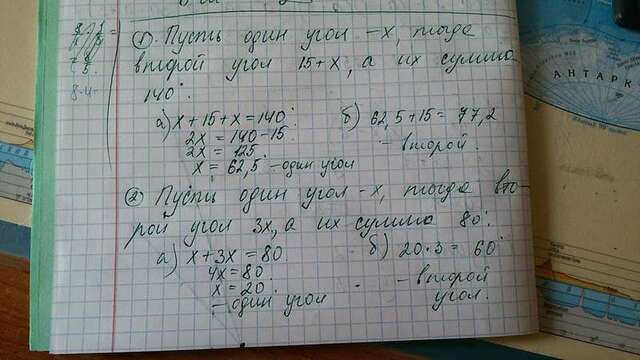 ① Пусть один угол – x, тогда
второй угол 15+x, а их сумма
140°.
а) x+15+x=140°.
2x = 140-15.
2x = 125.
x = 62,5° – один угол
б) 62,5+15 = 77,2
– второй.
② Пусть один угол – x, тогда вто-
рой угол 3x, а их сумма 80°.
а) x+3x=80
4x=80.
x=20.
– один угол
б) 20·3= 60°
– второй
угол.
АНТАРК